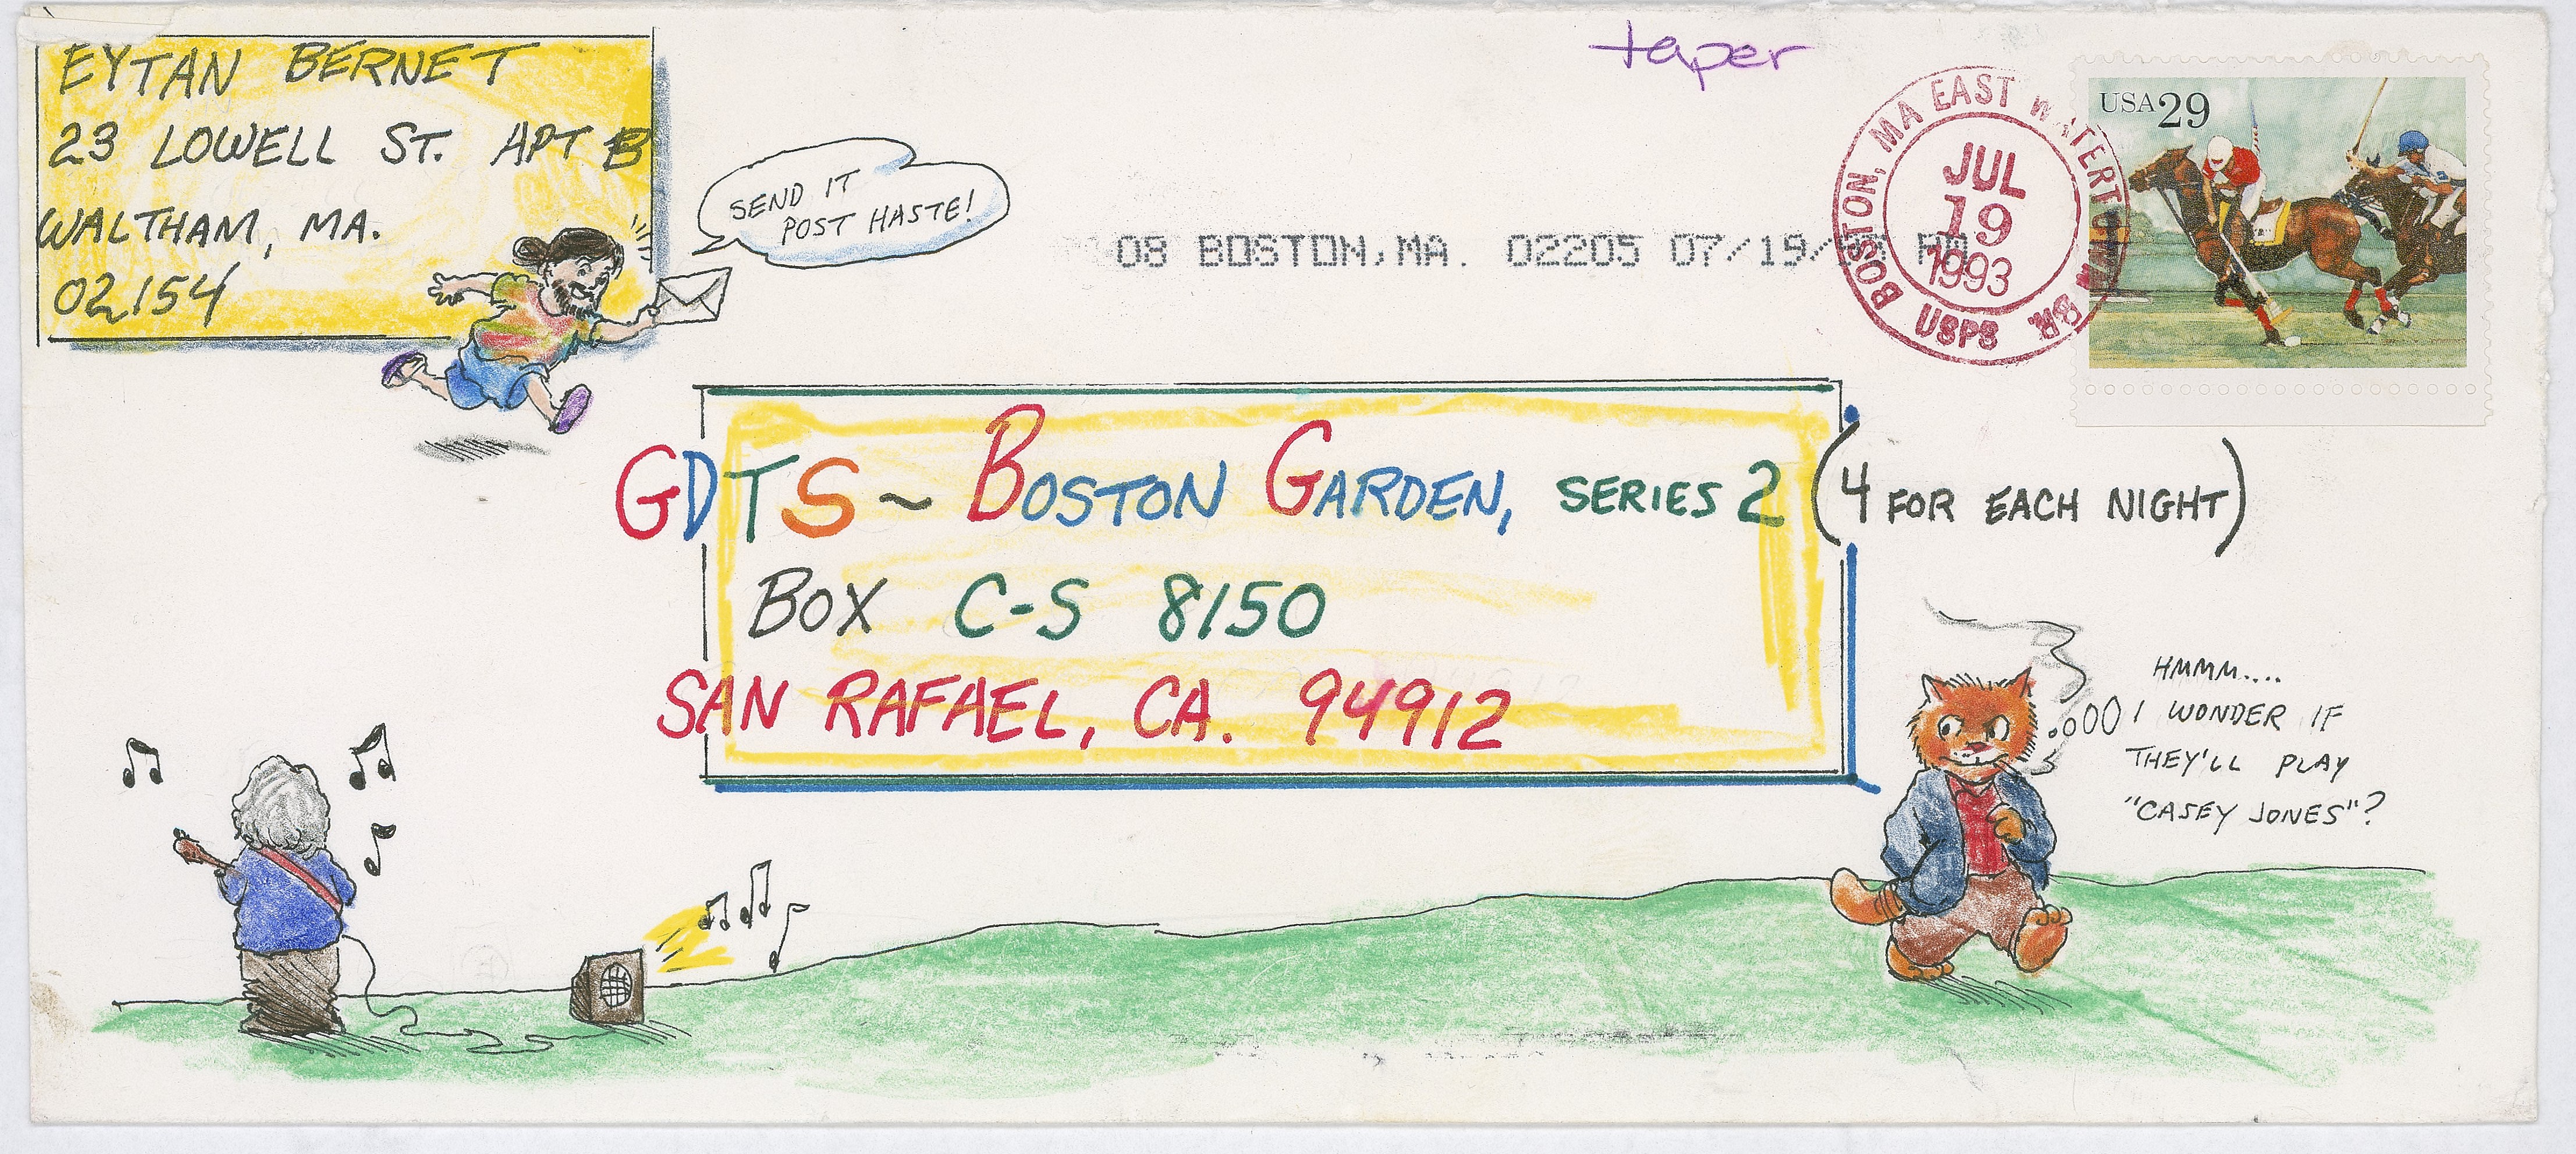 EYTAN BERNET
23 LOWELL ST. APT B
WALTHAM, MA.
02154
taper
SEND IT
POST HASTE!
08 BOSTON, MA. 02205 07/19/ PM
BOSTON, MA EAST WATERTOWN BR.
JUL
19
1993
USPS
USA 29
GDTS ~ BOSTON GARDEN, SERIES 2 (4 FOR EACH NIGHT)
BOX C-S 8150
SAN RAFAEL, CA. 94912
HMMM....
I WONDER IF
THEY'LL PLAY
"CASEY JONES"?